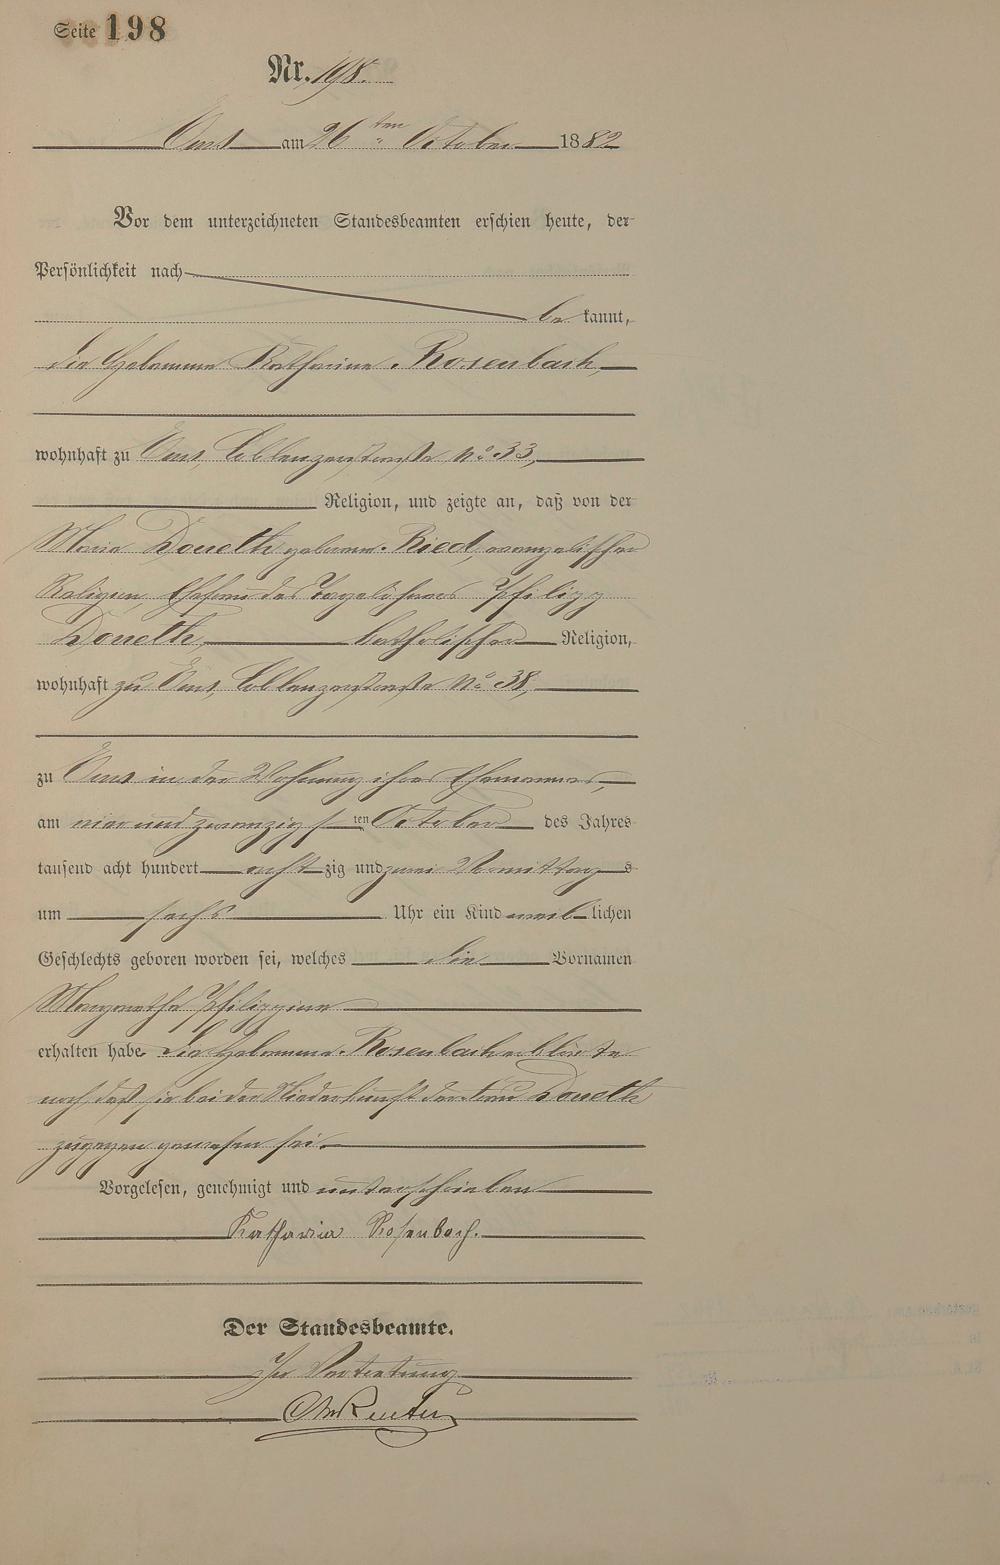 Seite 198
Nr. 198.
Ems am 26 ten October 1882
Vor dem unterzeichneten Standesbeamten erschien heute, der
Persönlichkeit nach
be kannt,
die Hebamme Katharine Rosenbach,
wohnhaft zu Ems, Coblenzerstraße No 33,
Religion, und zeigte an, daß von der
Maria Doueth geborene Ried, evangelischer
Religion, Ehefrau des Tagelöhners Philipp
Doueth, katholischer Religion,
wohnhaft zu Ems, Coblenzerstraße No 38,
zu Ems in der Wohnung ihres Ehemannes,
am vier und zwanzigsten October des Jahres
tausend acht hundert acht zig und zwei Vormittags
um sechs Uhr ein Kind weiblichen
Geschlechts geboren worden sei, welches die Vornamen
Margaretha Philippine
erhalten habe. Die Hebamme Rosenbach erklärte
noch, daß sie bei der Niederkunft der Frau Doueth
zugegen gewesen sei.
Vorgelesen, genehmigt und unterschrieben
Katharia Rosenbach.
Der Standesbeamte.
In Vertretung